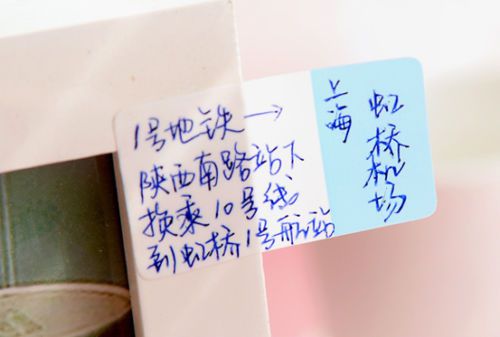 1号地铁→
陕西南路站下
换乘10号线
到虹桥1号航站
上海
虹桥机场